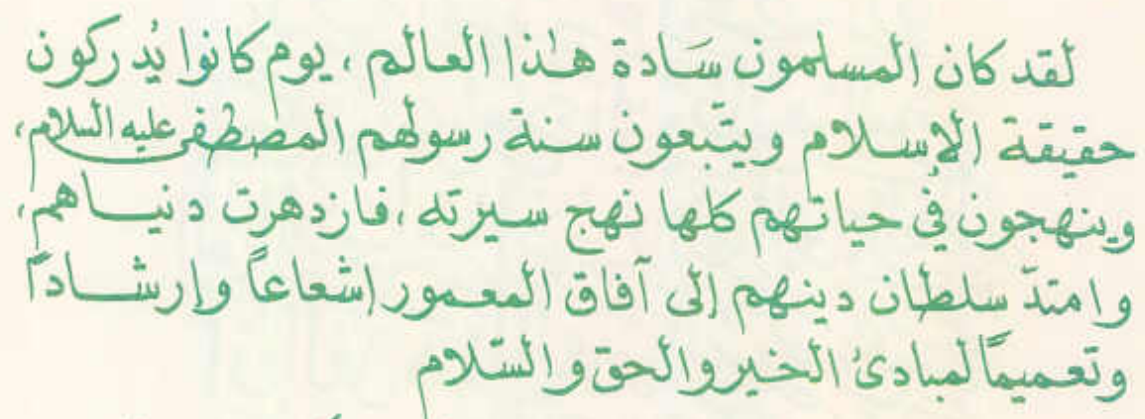 لقد كان المسلمون سَادة هٰذا العالم ، يوم كانوا يُدركون
حقيقة الإسلام ويتّبعون سنة رسولهم المصطفى عليه السلام،
وينهجون في حياتهم كلها نهج سيرته ، فازدهرت دنياهم،
وامتدّ سلطان دينهم إلى آفاق المعمور إشعاعاً وإرشاداً
وتعميماً لمبادئ الخير والحق والسّلام